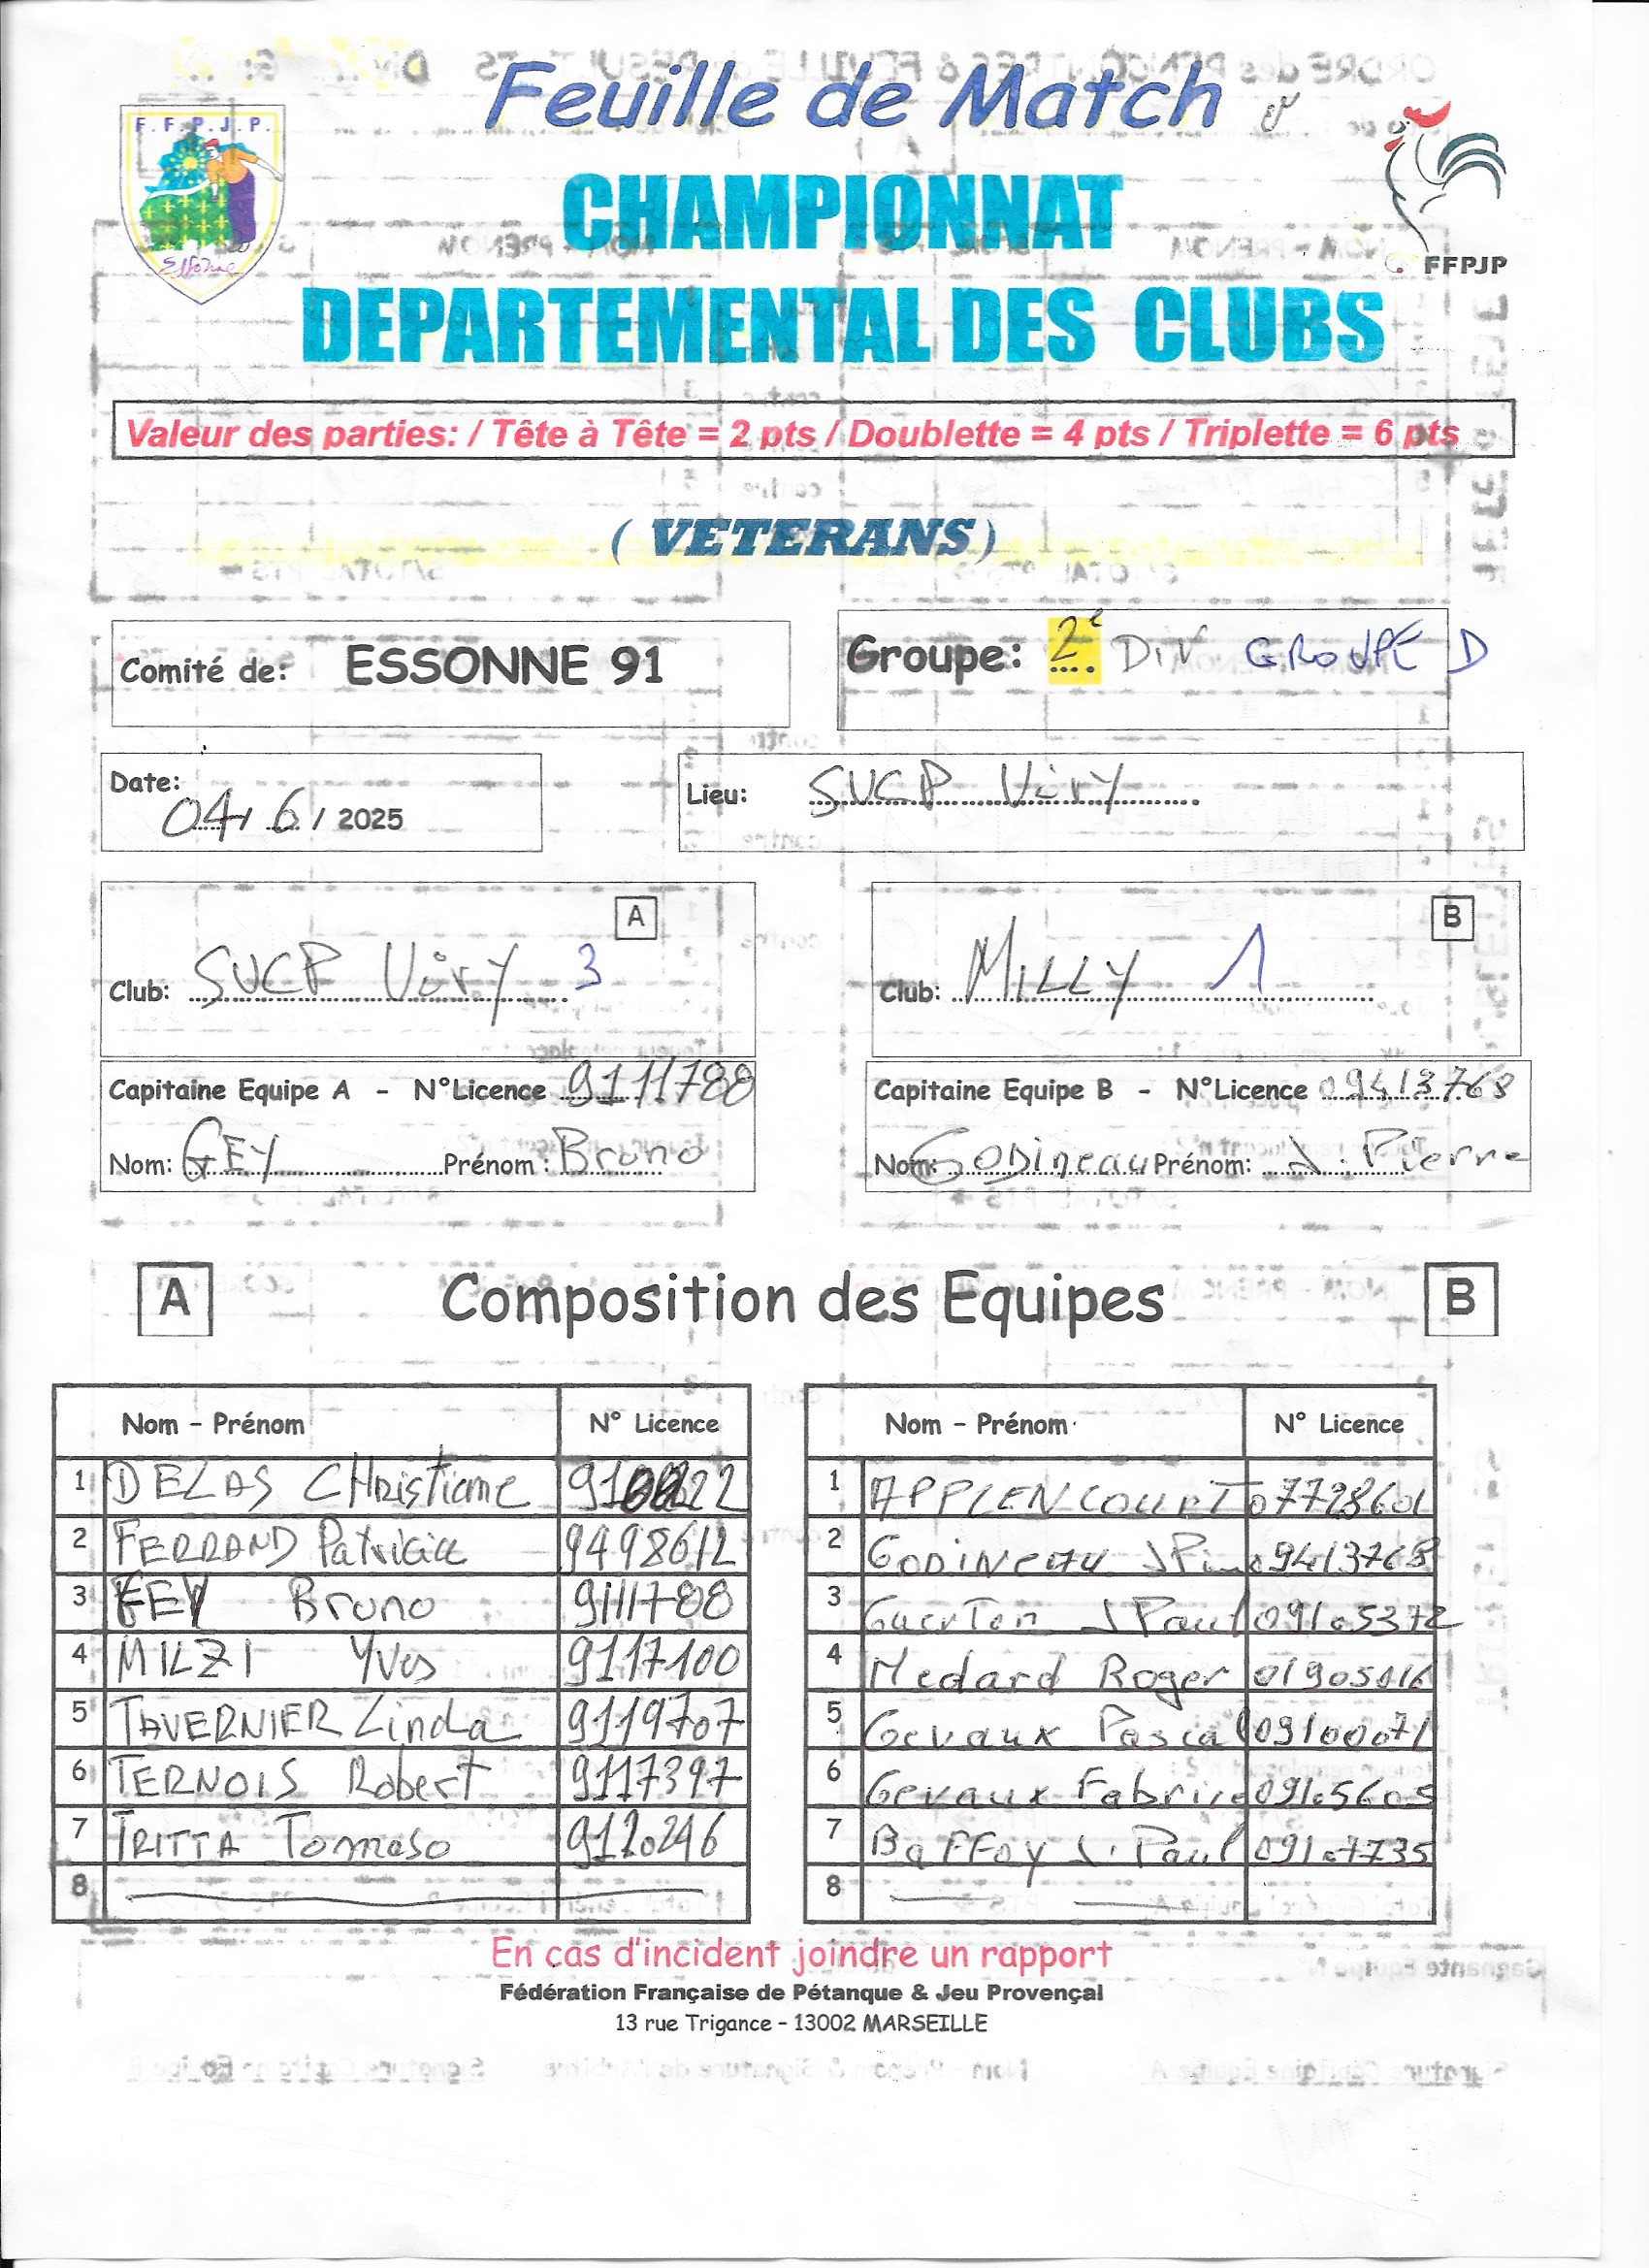 Feuille de Match
F.F.P.J.P.
Essonne
FFPJP
CHAMPIONNAT
DEPARTEMENTAL DES CLUBS
Valeur des parties: / Tête à Tête = 2 pts / Doublette = 4 pts / Triplette = 6 pts
( VETERANS )
Comité de: ESSONNE 91
Groupe: 2e DIV GROUPE D
Date: 04/6/2025
Lieu: SUCP Viry
A
Club: SUCP Viry 3
B
Club: MILLY 1
Capitaine Equipe A - N°Licence 9111788
Nom: GEY Prénom: Bruno
Capitaine Equipe B - N°Licence 09413768
Nom: GODineau Prénom: J. Pierre
A Composition des Equipes B
Nom - Prénom N° Licence
1 DELAS CHristiane
2 FERRAND Patricia 9498612
3 GEY Bruno 9111788
4 MILZI Yves 9117100
5 TAVERNIER Linda 9119707
6 TERNOIS Robert 9117397
7 TRITTA Tomaso 9120246
8
Nom - Prénom N° Licence
1 APPLENCOURT 07728601
2 GODINEAU JPierre 09413768
3 Guerton J Paul 09105372
4 Medard Roger 01905016
5 Gevaux Pascal 09100071
6 Gevaux Fabrice 09105605
7 BaFFoy J. Paul 09107735
8
En cas d'incident joindre un rapport
Fédération Française de Pétanque & Jeu Provençal
13 rue Trigance - 13002 MARSEILLE